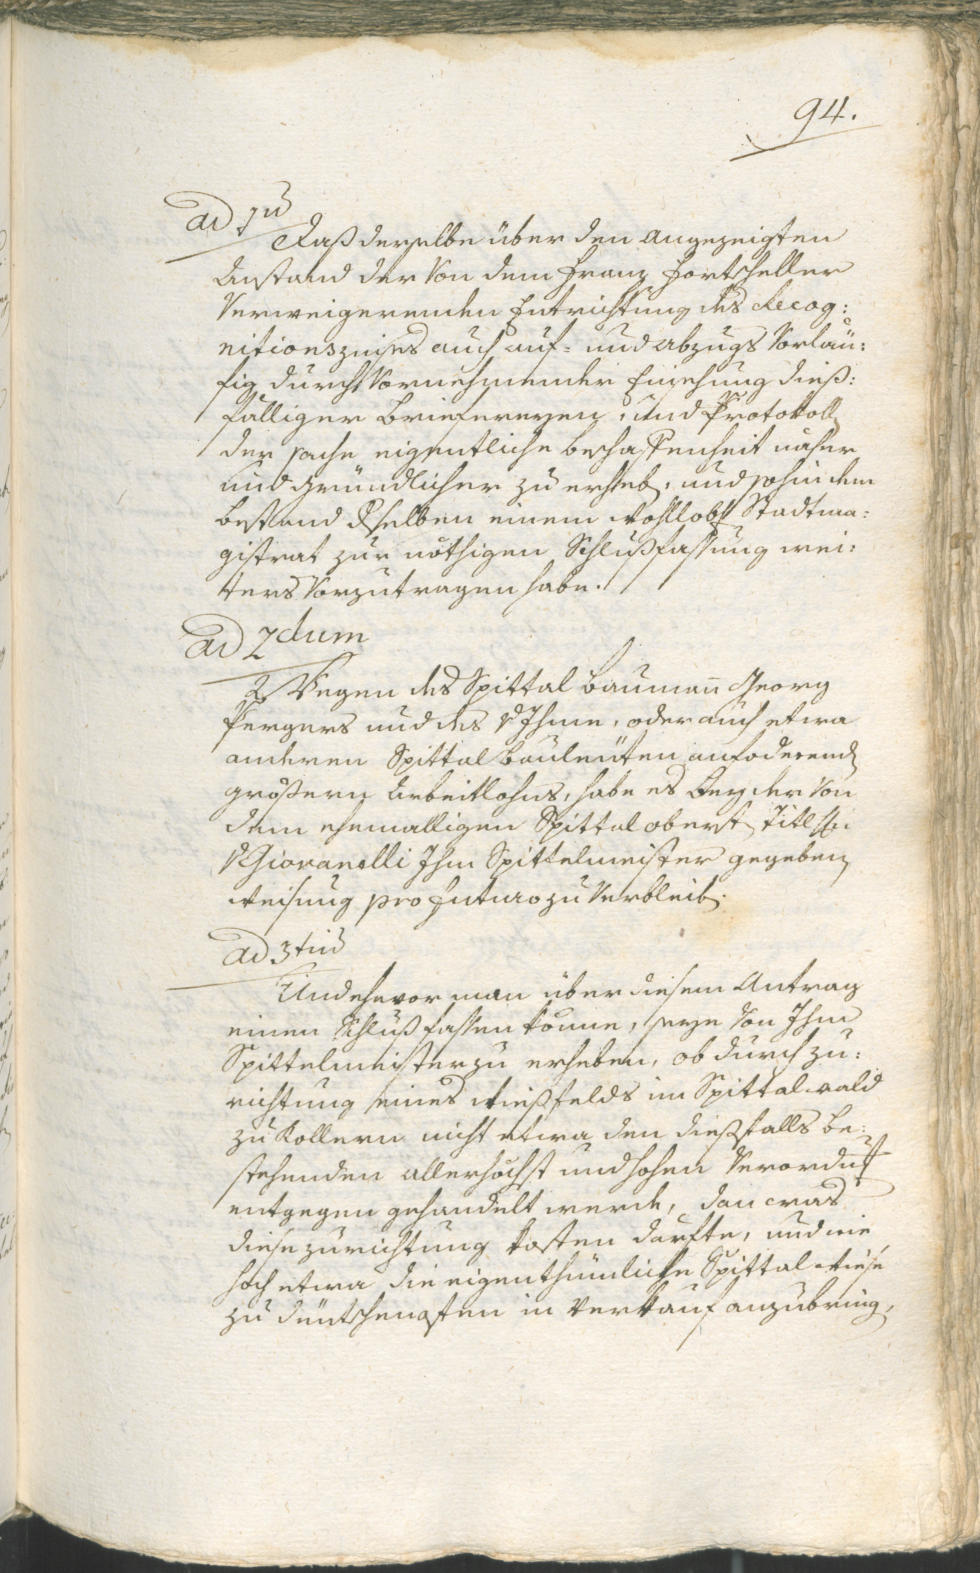 94.
ad 1um
Daß derselbe über den angezeigten
Anstand der von dem Franz Hortscheller
Verweigerenden Entrichtung des Recog:
nitionszinses auch auf- und abzugs Vorläu:
fig durch Vornehmender Einsehung dieß:
fälliger Briefereyen, und Protokoll
der sache eigentliche beschaffenheit näher
und gründlicher zu erheb, und sohin den
bestand dselben einem wohllobl Stadtma:
gistrat zur nöthigen Schlußfassung wei:
ters Vorzutragen habe.
ad 2dum
Wegen des Spittal baumañ Georg
Pergers und des v Ihme, oder auch etwa
anderen Spittal bauleüten anfoderend
größern Arbeitlohns, habe es bey der Von
dem ehemalligen Spittal obrist, Titl H:
v Giovanelli Ihm Spittelmeister gegeben
weisung pro futuro zu Verbleib.
ad 3tiū
Und ehevor man über diesem Antrag
einen schluß fassen könne, seye Von Ihm
Spittelmeister zu erheben, ob durch zu:
richtung eines wießfelds im Spittal wald
zu Kollern nicht etwa den dießfalls be:
stehenden allerhöchst und hohen Verordng
entgegen gehandelt werde, dan was
diese zurichtung kosten därfte, und wie
hoch etwa die eigenthümliche Spittal wiese
zu deütschenofen in Verkauf anzubring,